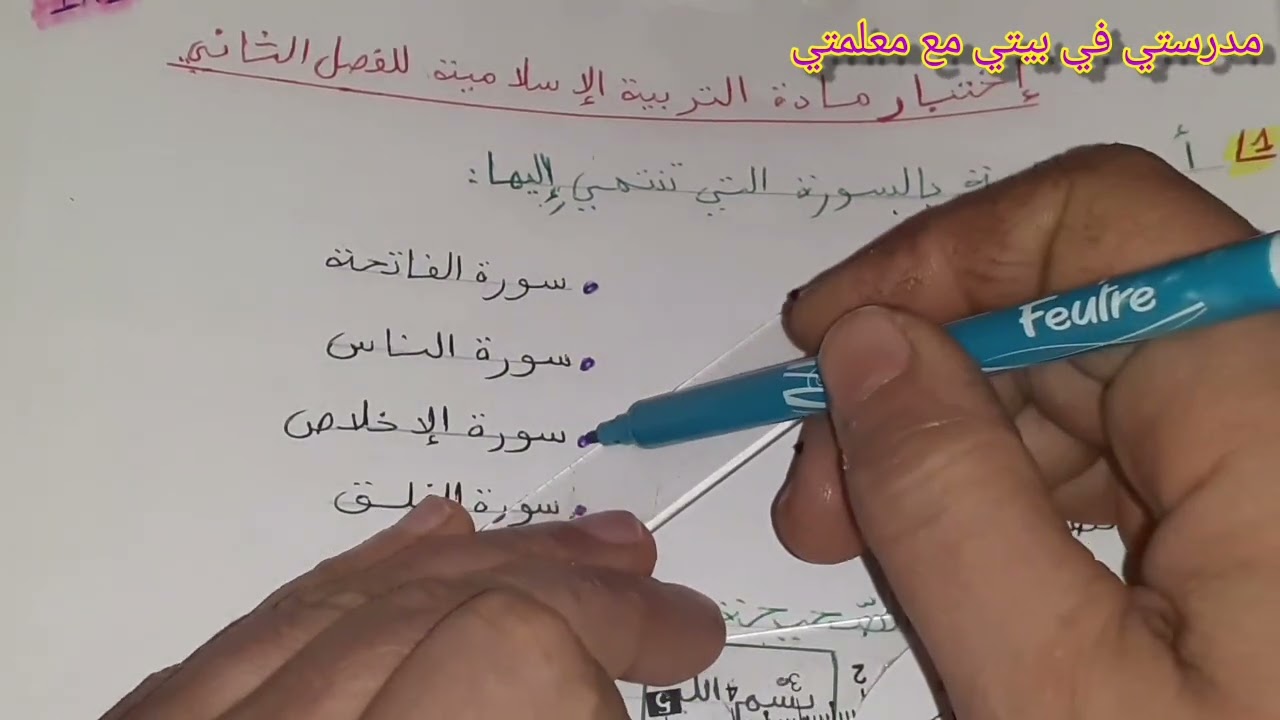 مدرستي في بيتي مع معلمتي
إختبار مادة التربية الإسلامية للفصل الثاني
1
أ
بالسورة التي تنتمي إليها:
سورة الفاتحة
سورة الناس
سورة الإخلاص
سورة الفلق
Feutre
2
بسم الله
3
4
5